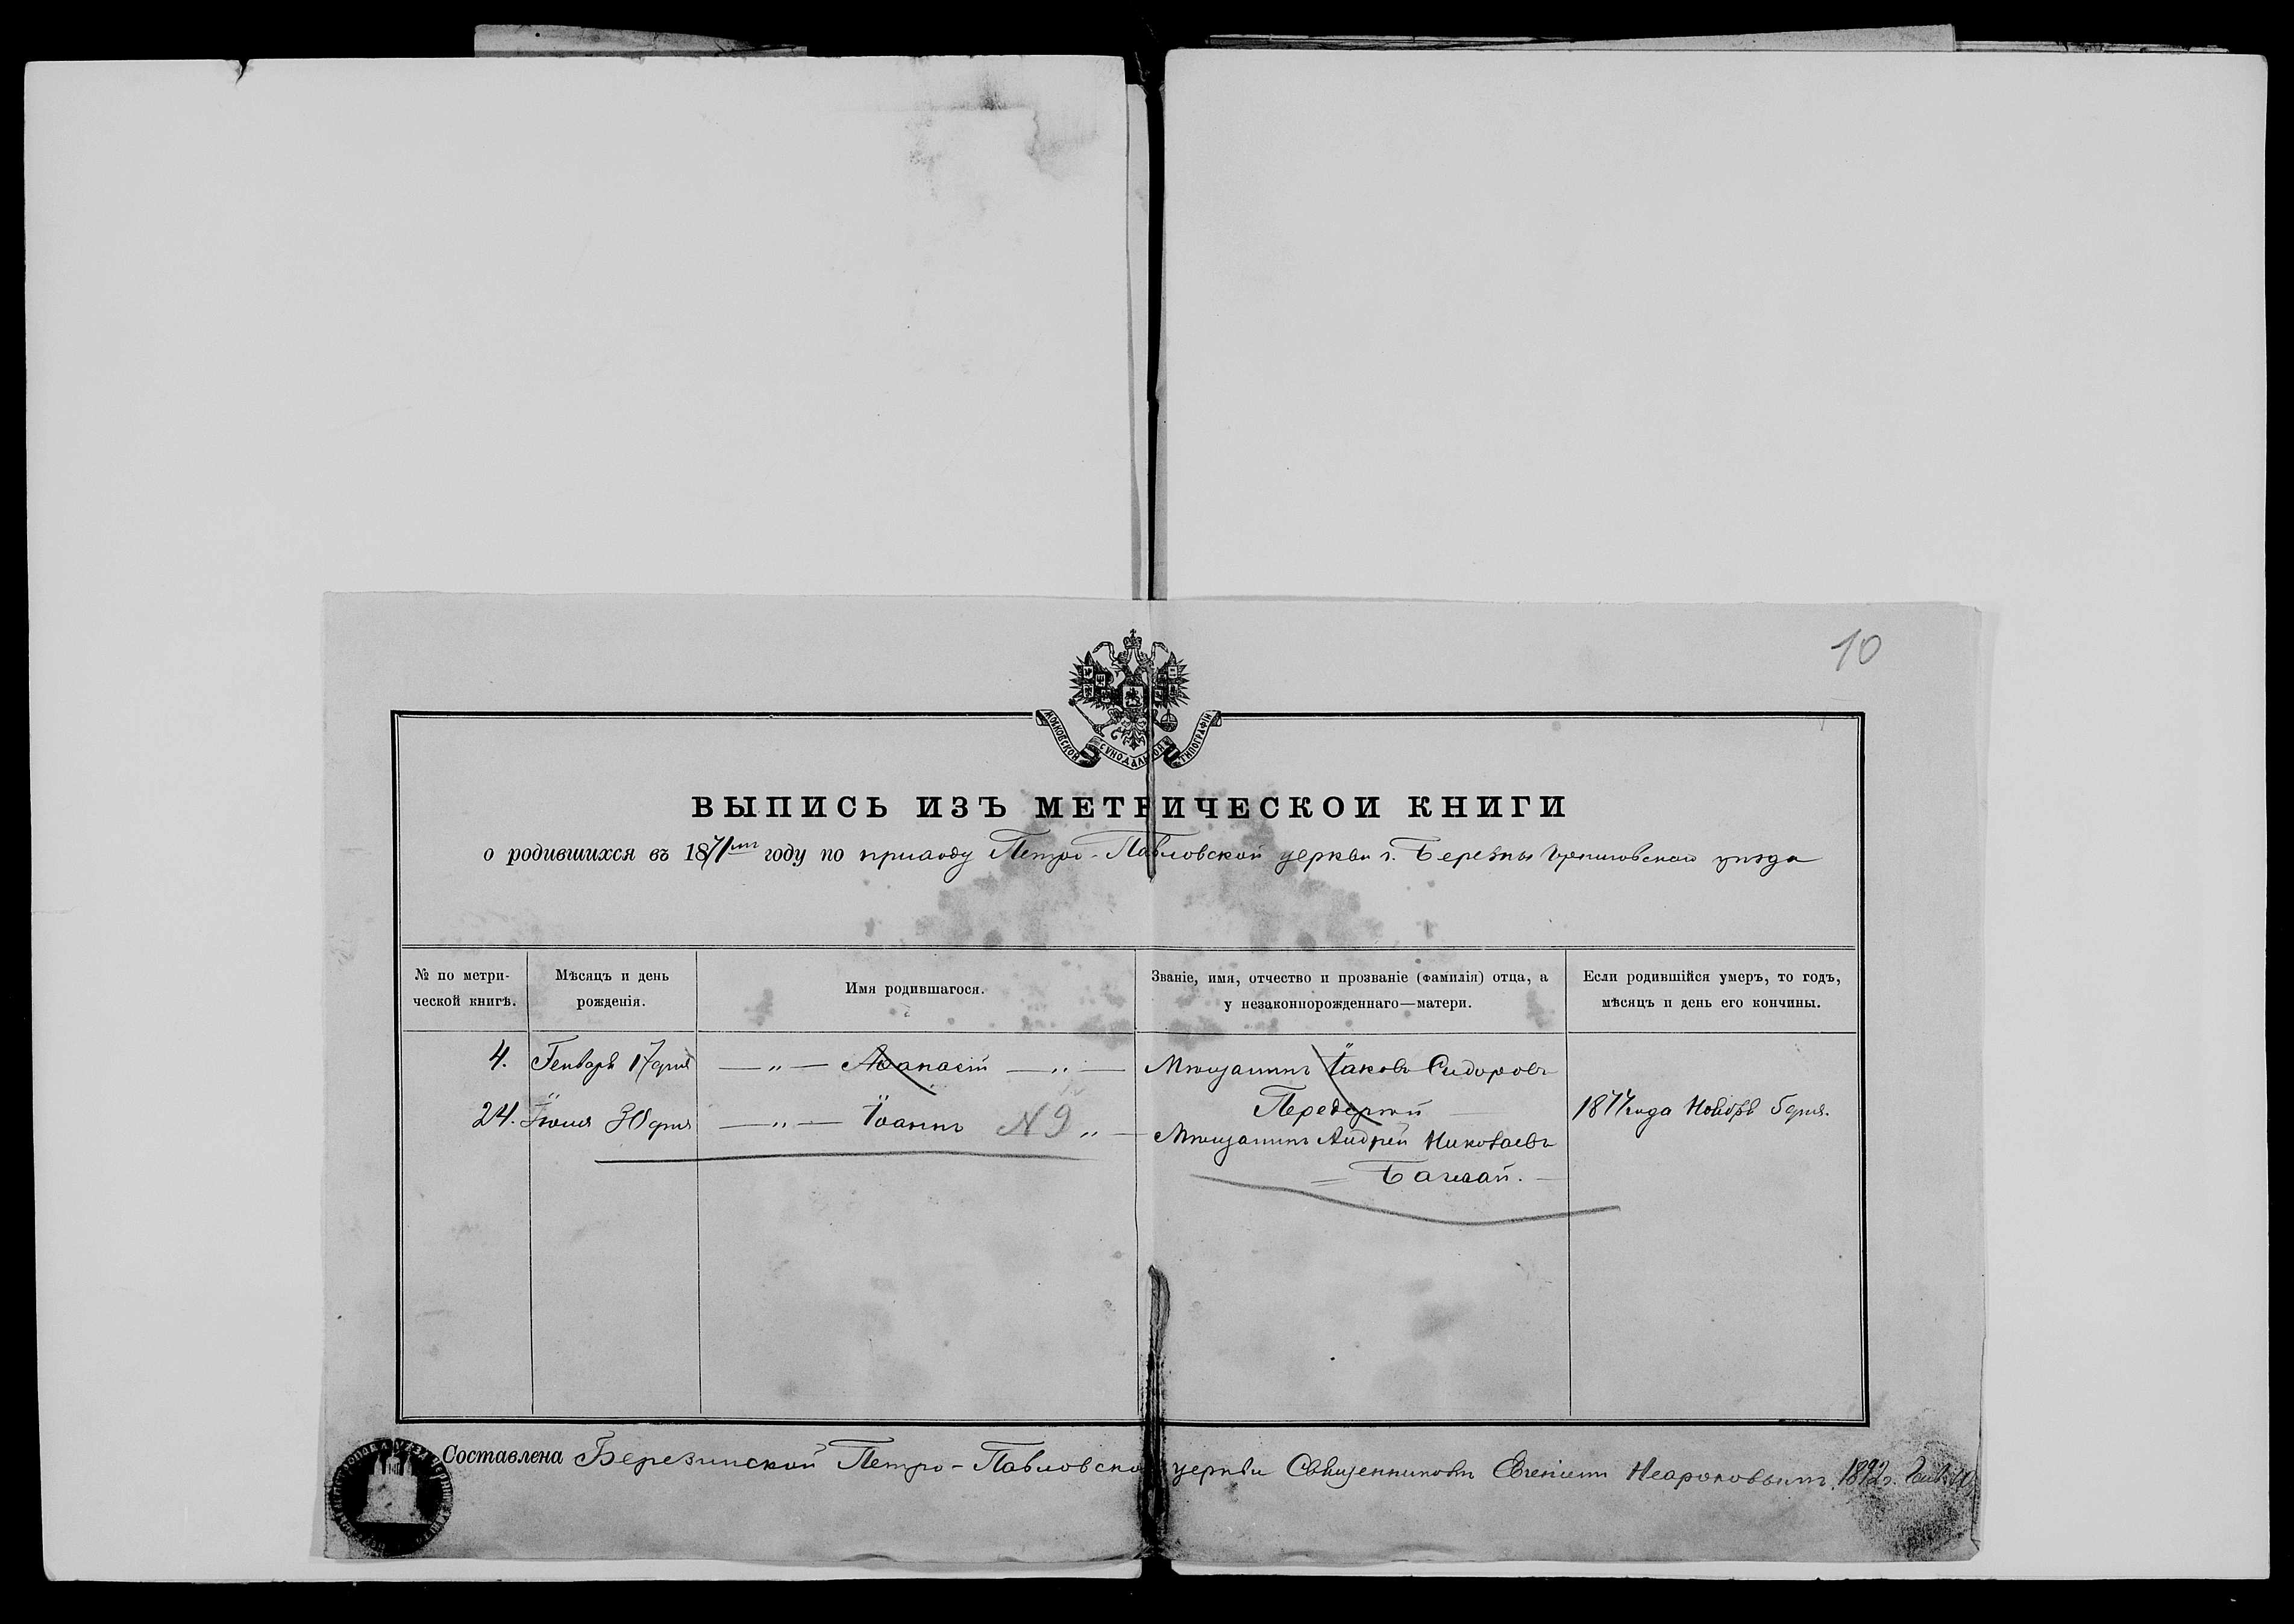 10
МОСКОВСКОЙ СѴНОДАЛЬНОЙ ТИПОГРАФІИ
ВЫПИСЬ ИЗЪ МЕТРИЧЕСКОИ КНИГИ
о родившихся въ 1871мъ году по приходу Петро-Павловской церкви г. Березны Черниговскаго уѣзда
№ по метри-
ческой книгѣ.
Мѣсяцъ и день
рожденія.
Имя родившагося.
Званіе, имя, отчество и прозваніе (фамилія) отца, а
у незаконнорожденнаго—матери.
Если родившійся умеръ, то годъ,
мѣсяцъ и день его кончины.
4. Генваря 17 дня — „ — Аѳанасій — „ — Мѣщанинъ Іаковъ Сидоровъ
Передерій
24. Іюня 30 дня — „ — Іоаннъ N 9 „ — Мѣщанинъ Андрей Николаевъ 1877 года Ноября 5 дня.
= Баглай. —
Составлена Березинской Петро-Павловской церкви Священникомъ Евгеніем 1892 г.